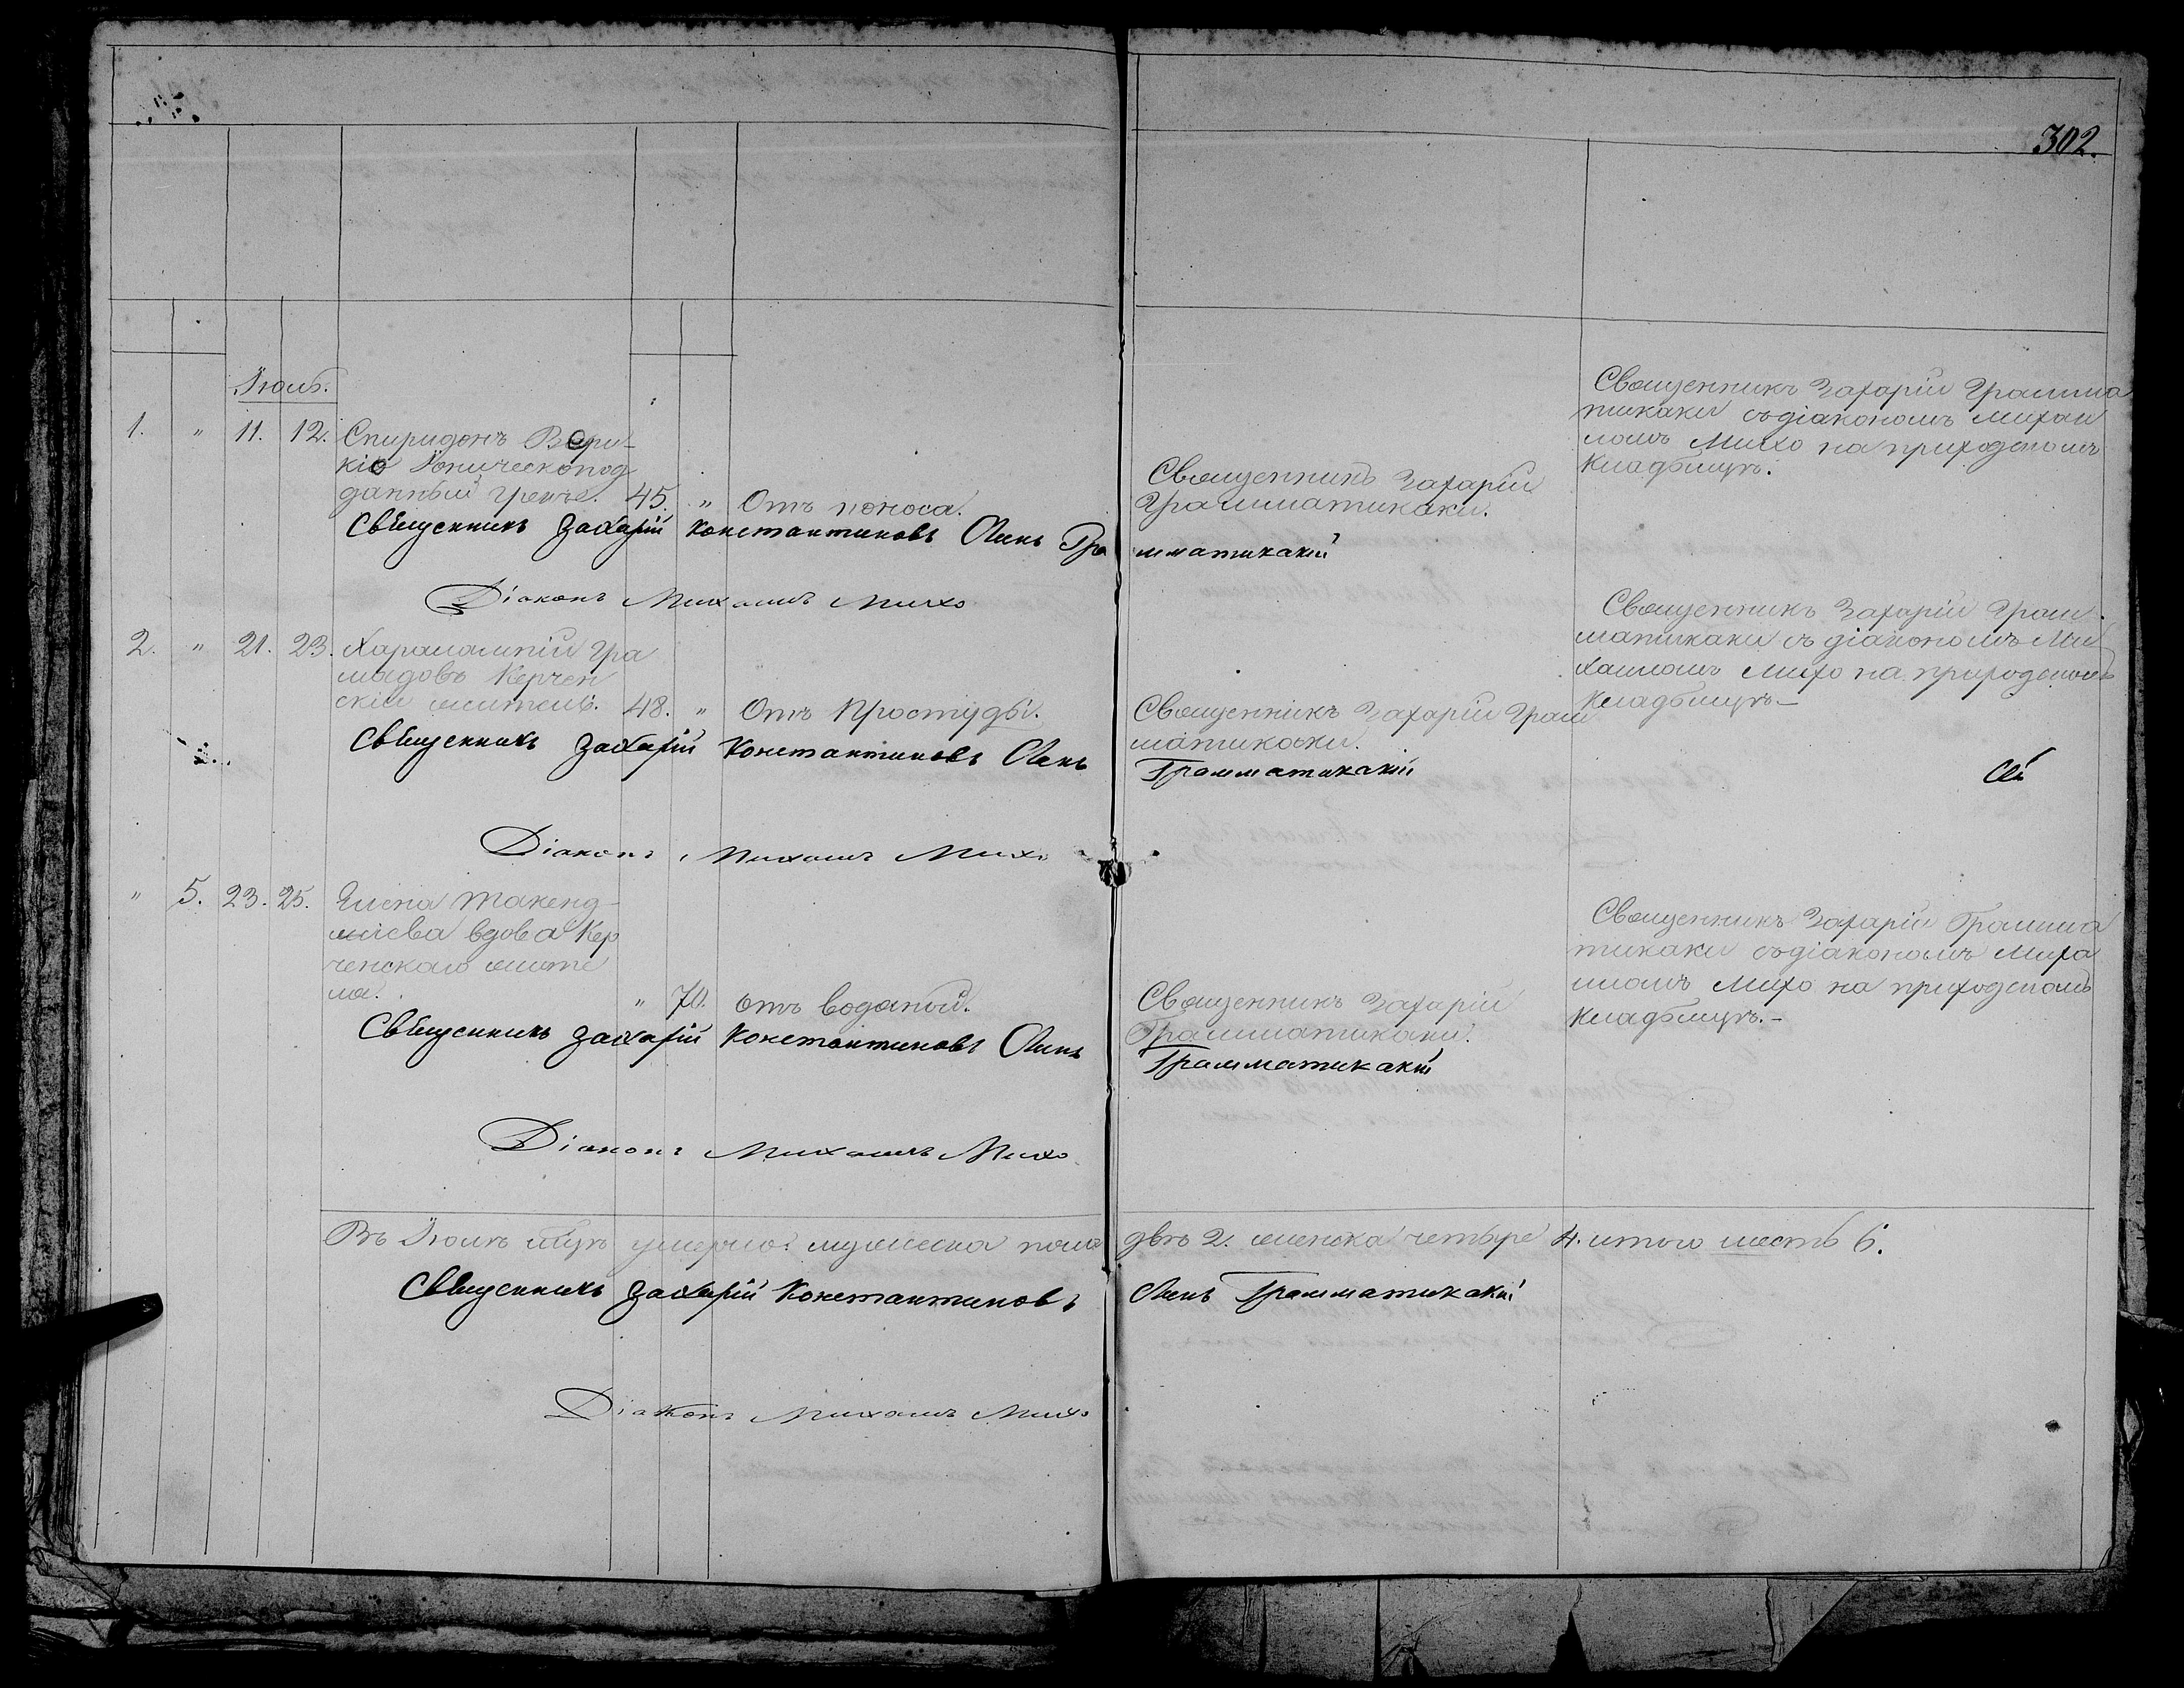 302.
Іюль.
1. " 11. 12. Спиридонъ Вери-
кіо Іоническоподданный грекъ. 45. " Отъ поноса.
Священникъ Захарій
Грамматикаки.
Священникъ Захарій Грамма
тикаки съ діакономъ Михаи
ломъ Михо на приходскомъ
кладбищѣ.
Священникъ Захарій Константиновъ Грамматикакій
Діаконъ Михаилъ Михо
2. " 21. 23. Харалампій Гра
мадовъ Керчен
скій житель. 48. " Отъ простуды.
Священникъ Захарій Грам
матикаки.
Священникъ Захарій Грам-
матикаки съ діакономъ Ми
хаиломъ Михо на приходскомъ
кладбищѣ.-
Священникъ Захарій Константиновъ Грамматикакій
Діаконъ Михаилъ Михо
" 5. 23. 25. Елена
вдова Кер
ченскаго жите
ля. " 70. отъ водяной.
Священникъ Захарій
Грамматикаки.
Священникъ Захарій Грамма
тикаки съ діакономъ Миха
иломъ Михо на приходскомъ
кладбищѣ.-
Священникъ Захарій Константиновъ Грамматикакій
Діаконъ Михаилъ Михо
Въ Іюлѣ м̃цѣ умерло: мужеска пола двѣ 2. женска четыре 4. итого шесть 6.
Священникъ Захарій Константиновъ Грамматикакій
Діаконъ Михаилъ Михо